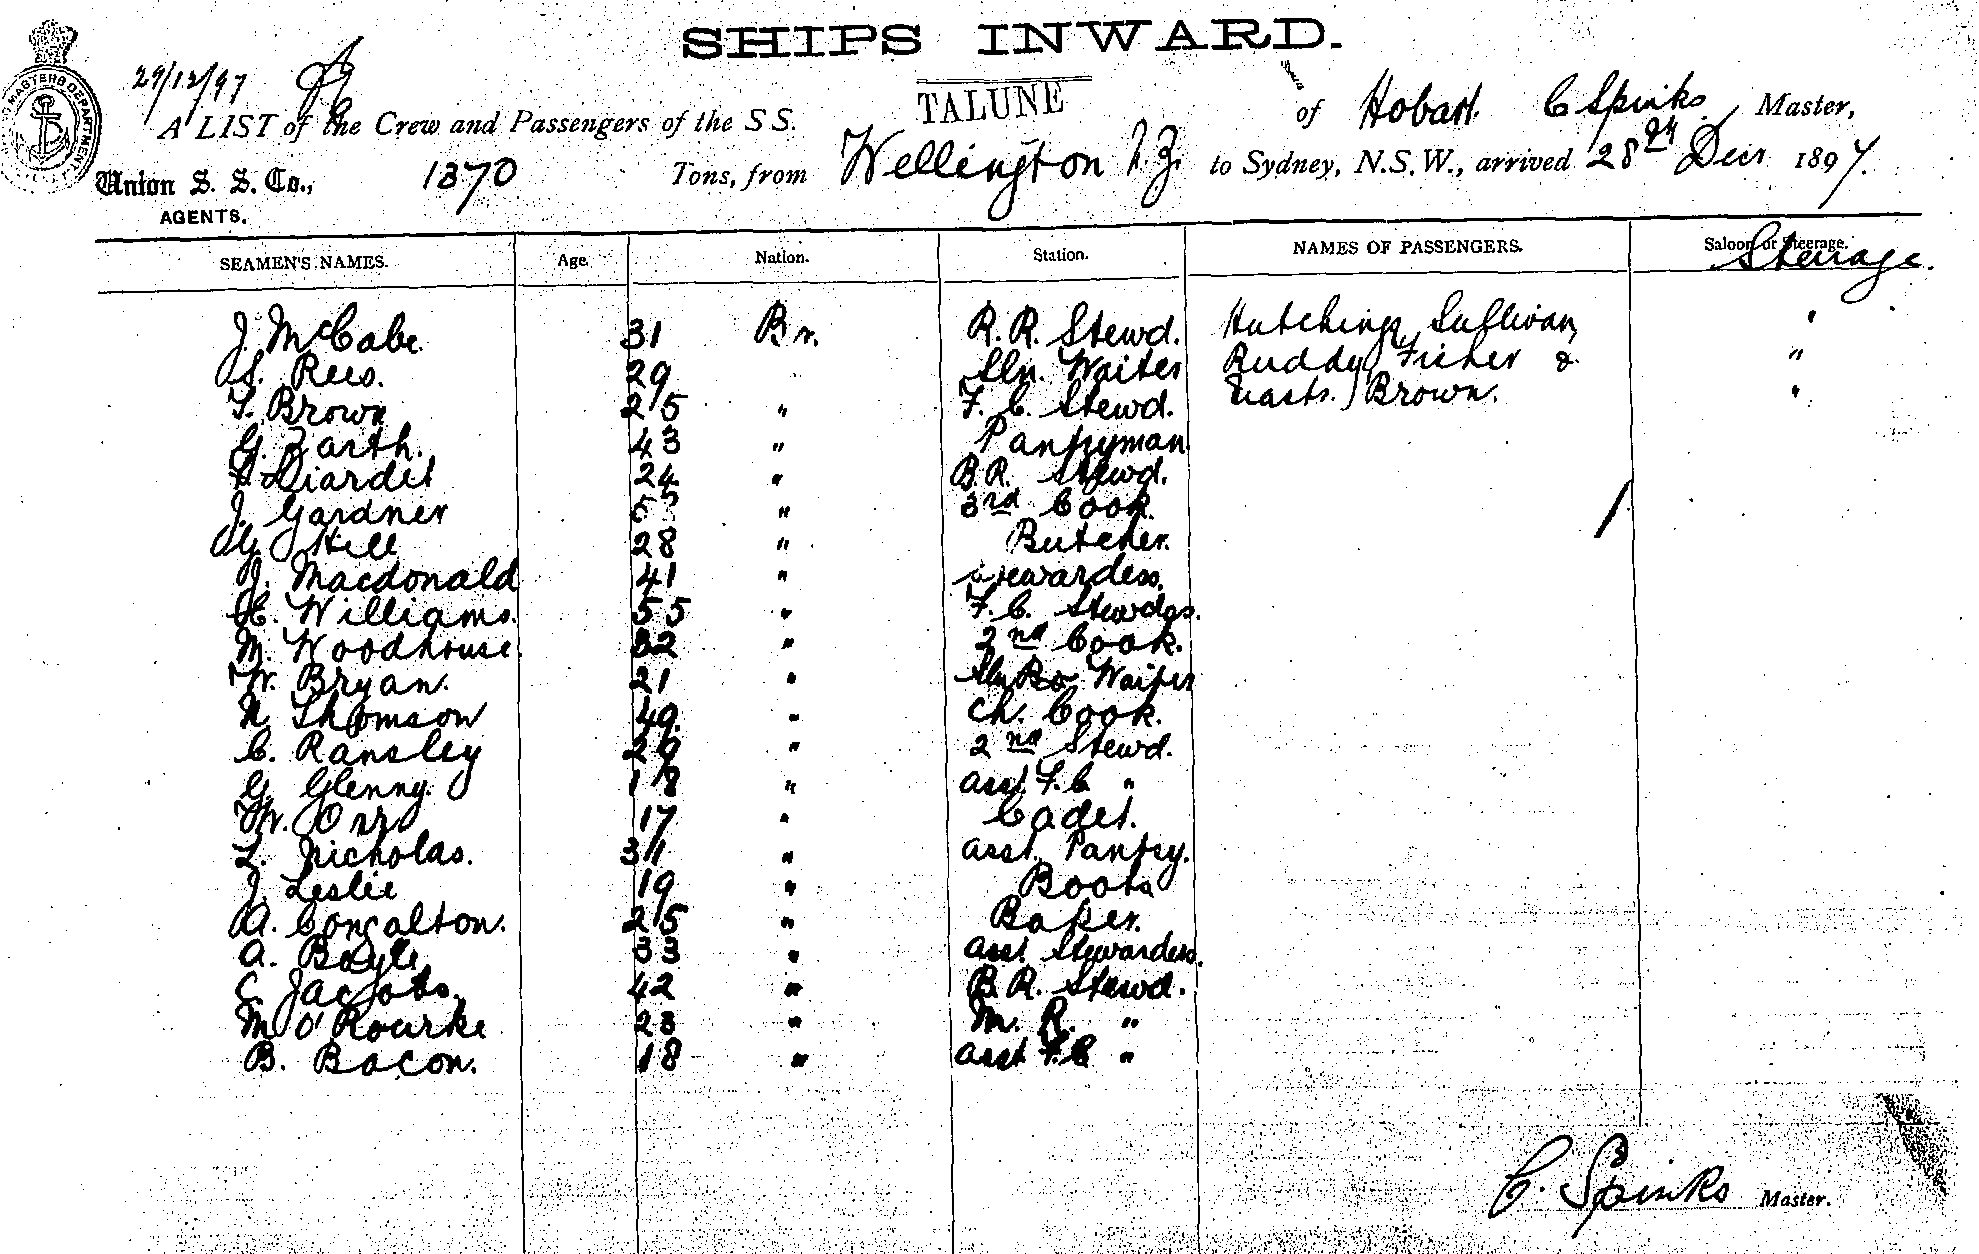 SHIPS INWARD.
MASTERS DEPARTMENT
29/12/97
TALUNE
A LIST of the Crew and Passengers of the S S. of Hobart. C Spinks Master,
Union S. S. Co., 1370 Tons, from Wellington N.Z. to Sydney, N.S.W., arrived 28th Decr 1897.
AGENTS.
SEAMEN'S NAMES. Age. Nation. Station. NAMES OF PASSENGERS. Saloon or Steerage.
Steerage.
J. McCabe. 31 Br. R.R. Stewd. Hutchings, Sullivan, "
S. Rees. 29 Sln. Waiter Ruddy, Fisher & "
T. Brown 25 " F. C. Stewd. Brown. "
G. Zarth. 43 " Pantryman
Liardet 24 " B.R. Stewd.
J. Gardner " 3rd Cook.
G. Hill 28 " Butcher.
J. Macdonald 41 " Stewardess.
C. Williams. 55 " F. C. Stewdess.
M. Woodhouse. 32 " 2nd Cook.
W. Bryan. 21 " Sln Waiter
N. Thomson 49 " Ch. Cook.
C. Ransley 29 " 2nd Stewd.
G. Glenny. 18 " asst F.C "
W. Orr 17 " Cadet.
L. Nicholas. 34 " asst. Pantry.
J. Leslie 19 " Boots
A. Congalton. 25 " Baker.
A. Boyle 33 " asst Stewardess.
C. Jacobs. 42 " B.R. Stewd.
M O'Rourke 23 " M. R. "
B. Bacon. 18 " asst F.C "
C. Spinks Master.